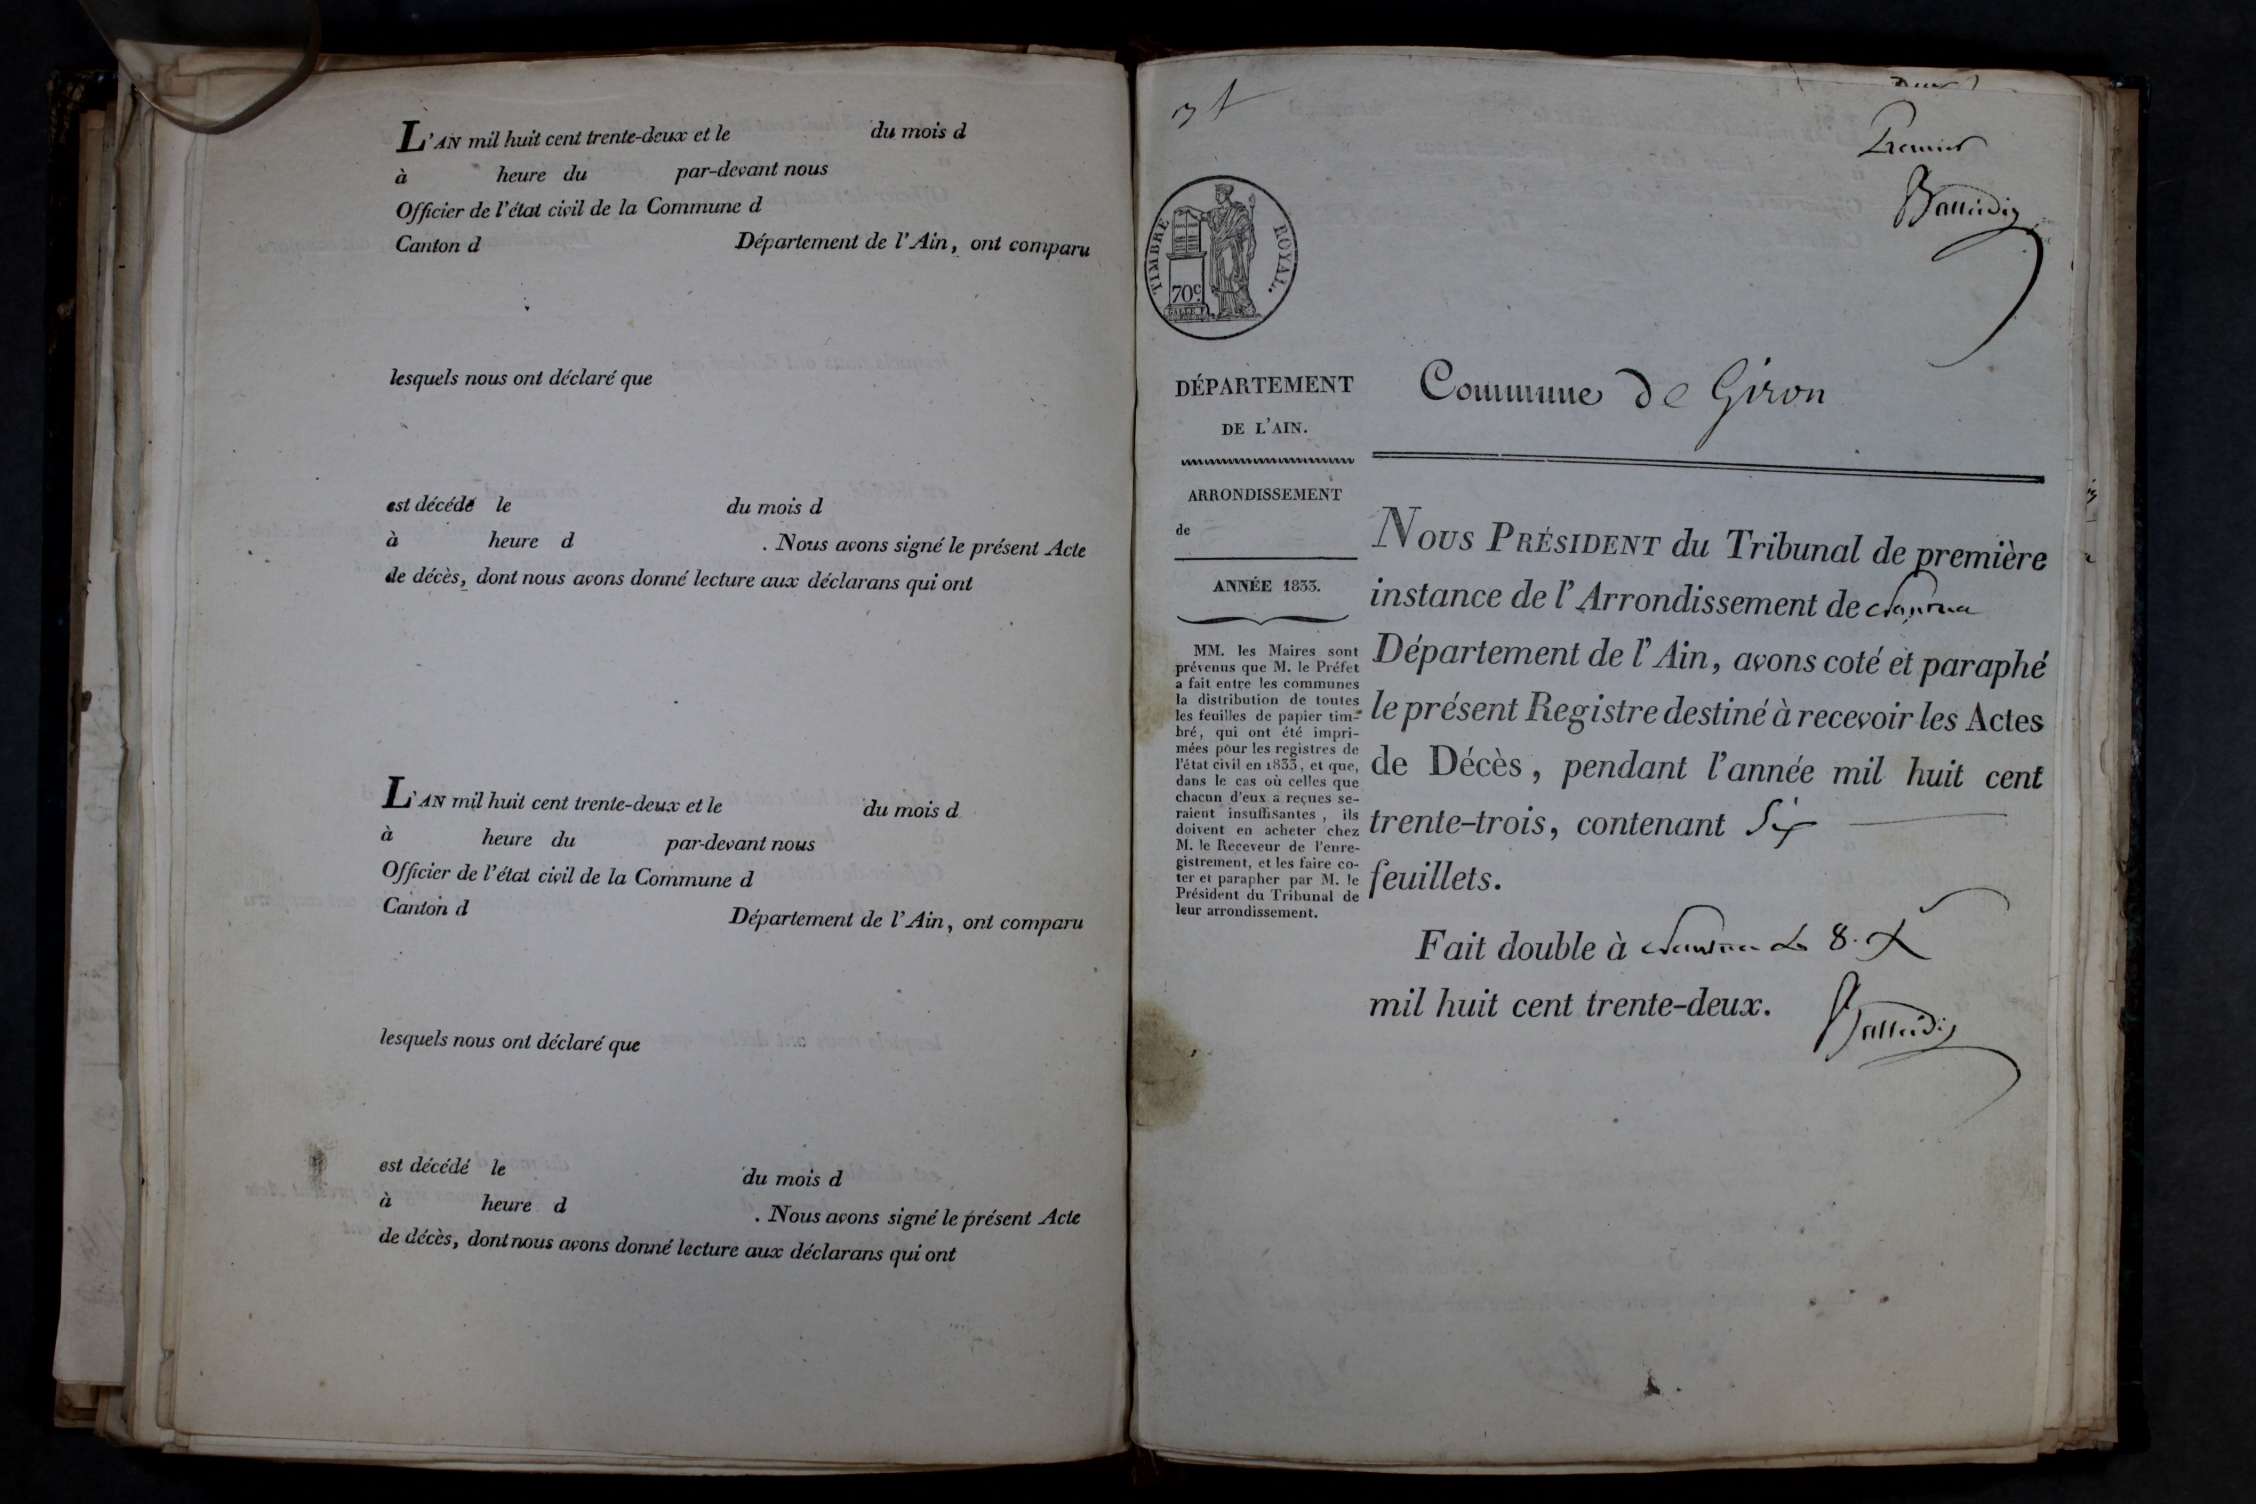 L'AN mil huit cent trente-deux et le du mois d
à heure du par-devant nous
Officier de l'état civil de la Commune d
Canton d Département de l'Ain, ont comparu
lesquels nous ont déclaré que
est décédé le du mois d
à heure d . Nous avons signé le présent Acte
de décès, dont nous avons donné lecture aux déclarans qui ont
L'AN mil huit cent trente-deux et le du mois d
à heure du par-devant nous
Officier de l'état civil de la Commune d
Canton d Département de l'Ain, ont comparu
lesquels nous ont déclaré que
est décédé le du mois d
à heure d . Nous avons signé le présent Acte
de décès, dont nous avons donné lecture aux déclarans qui ont
Premier
TIMBRE ROYAL.
70c
DÉPARTEMENT
DE L'AIN.
ARRONDISSEMENT
de
ANNÉE 1833.
MM. les Maires sont
prévenus que M. le Préfet
a fait entre les communes
la distribution de toutes
les feuilles de papier tim-
bré, qui ont été impri-
mées pour les registres de
l'état civil en 1833, et que,
dans le cas où celles que
chacun d'eux a reçues se-
raient insuffisantes, ils
doivent en acheter chez
M. le Receveur de l'enre-
gistrement, et les faire co-
ter et parapher par M. le
Président du Tribunal de
leur arrondissement.
Commune de Giron
NOUS PRÉSIDENT du Tribunal de première
instance de l'Arrondissement de Nantua
Département de l'Ain, avons coté et paraphé
le présent Registre destiné à recevoir les Actes
de Décès, pendant l'année mil huit cent
trente-trois, contenant Six
feuillets.
Fait double à Nantua le 8.
mil huit cent trente-deux.